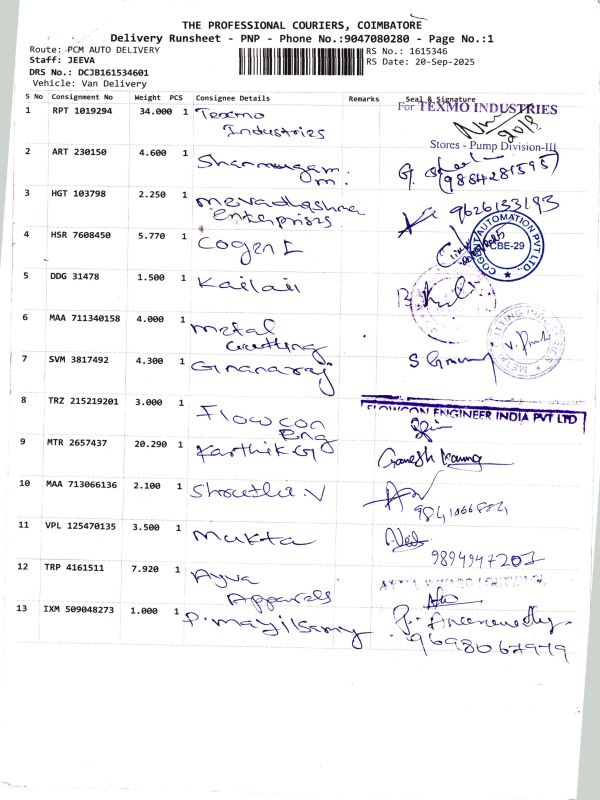 THE PROFESSIONAL COURIERS, COIMBATORE
Delivery Runsheet - PNP - Phone No.:9047080280 - Page No.:1
Route: PCM AUTO DELIVERY
RS No.: 1615346
Staff: JEEVA
RS Date: 20-Sep-2025
DRS No.: DCJB161534601
Vehicle: Van Delivery
S No Consignment No Weight PCS Consignee Details Remarks Seal & Signature
For TEXMO INDUSTRIES
1 RPT 1019294 34.000 1 Texmo
Industries
Stores - Pump Division-III
2 ART 230150 4.600 1 Shanmugam.
m.
3 HGT 103798 2.250 1
Enterprises 9626133193
4 HSR 7608450 5.770 1 Cogent
COGENT AUTOMATION PVT LTD.
CBE-29
5 DDG 31478 1.500 1 Kailaii
6 MAA 711340158 4.000 1 Metal
Cutting
7 SVM 3817492 4.300 1 Gnanaraj
8 TRZ 215219201 3.000 1 Flowcon
Eng
FLOWCON ENGINEER INDIA PVT LTD
9 MTR 2657437 20.290 1 Karthik G
Ganesh Kumar
10 MAA 713066136 2.100 1
11 VPL 125470135 3.500 1 Mukta
12 TRP 4161511 7.920 1 Ayva
Apparels
13 IXM 509048273 1.000 1 P. mayilsamy